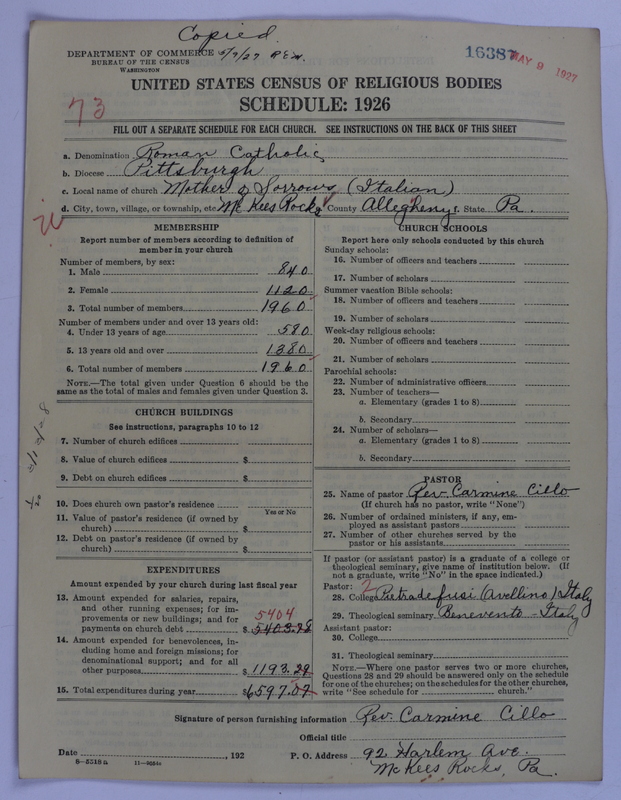 Copied
DEPARTMENT OF COMMERCE 5/7/27
BUREAU OF THE CENSUS
WASHINGTON
16387
MAY 9 1927
UNITED STATES CENSUS OF RELIGIOUS BODIES
SCHEDULE: 1926
73
FILL OUT A SEPARATE SCHEDULE FOR EACH CHURCH. SEE INSTRUCTIONS ON THE BACK OF THIS SHEET
a. Denomination Roman Catholic
b. Diocese Pittsburgh
c. Local name of church Mother of Sorrows (Italian)
d. City, town, village, or township, etc. Mc Kees Rocks County Allegheny f. State Pa.
MEMBERSHIP
Report number of members according to definition of
member in your church
Number of members, by sex:
1. Male 840
2. Female 1120
3. Total number of members 1960
Number of members under and over 13 years old:
4. Under 13 years of age 580
5. 13 years old and over 1380
6. Total number of members 1960
NOTE.—The total given under Question 6 should be the
same as the total of males and females given under Question 3.
CHURCH BUILDINGS
See instructions, paragraphs 10 to 12
7. Number of church edifices
8. Value of church edifices $
9. Debt on church edifices $
10. Does church own pastor's residence
Yes or No
11. Value of pastor's residence (if owned by
church) $
12. Debt on pastor's residence (if owned by
church) $
EXPENDITURES
Amount expended by your church during last fiscal year
13. Amount expended for salaries, repairs,
and other running expenses; for im-
provements or new buildings; and for 5404
payments on church debt $ 5403.78
14. Amount expended for benevolences, in-
cluding home and foreign missions; for
denominational support; and for all
other purposes $ 1193.29
15. Total expenditures during year $ 6597.07
CHURCH SCHOOLS
Report here only schools conducted by this church
Sunday schools:
16. Number of officers and teachers
17. Number of scholars
Summer vacation Bible schools:
18. Number of officers and teachers
19. Number of scholars
Week-day religious schools:
20. Number of officers and teachers
21. Number of scholars
Parochial schools:
22. Number of administrative officers
23. Number of teachers—
a. Elementary (grades 1 to 8)
b. Secondary
24. Number of scholars—
a. Elementary (grades 1 to 8)
b. Secondary
PASTOR
25. Name of pastor Rev. Carmine Cillo
(If church has no pastor, write "None")
26. Number of ordained ministers, if any, em-
ployed as assistant pastors
27. Number of other churches served by the
pastor or his assistants
If pastor (or assistant pastor) is a graduate of a college or
theological seminary, give name of institution below. (If
not a graduate, write "No" in the space indicated.)
Pastor: 2
28. College Pietradefusi (Avellino) Italy
29. Theological seminary Benevento - Italy
Assistant pastor:
30. College
31. Theological seminary
NOTE.—Where one pastor serves two or more churches,
Questions 28 and 29 should be answered only on the schedule
for one of the churches; on the schedules for the other churches,
write "See schedule for church."
Signature of person furnishing information Rev. Carmine Cillo
Official title
Date , 192
P. O. Address 92 Harlem Ave.
Mc Kees Rocks, Pa.
8—5518a